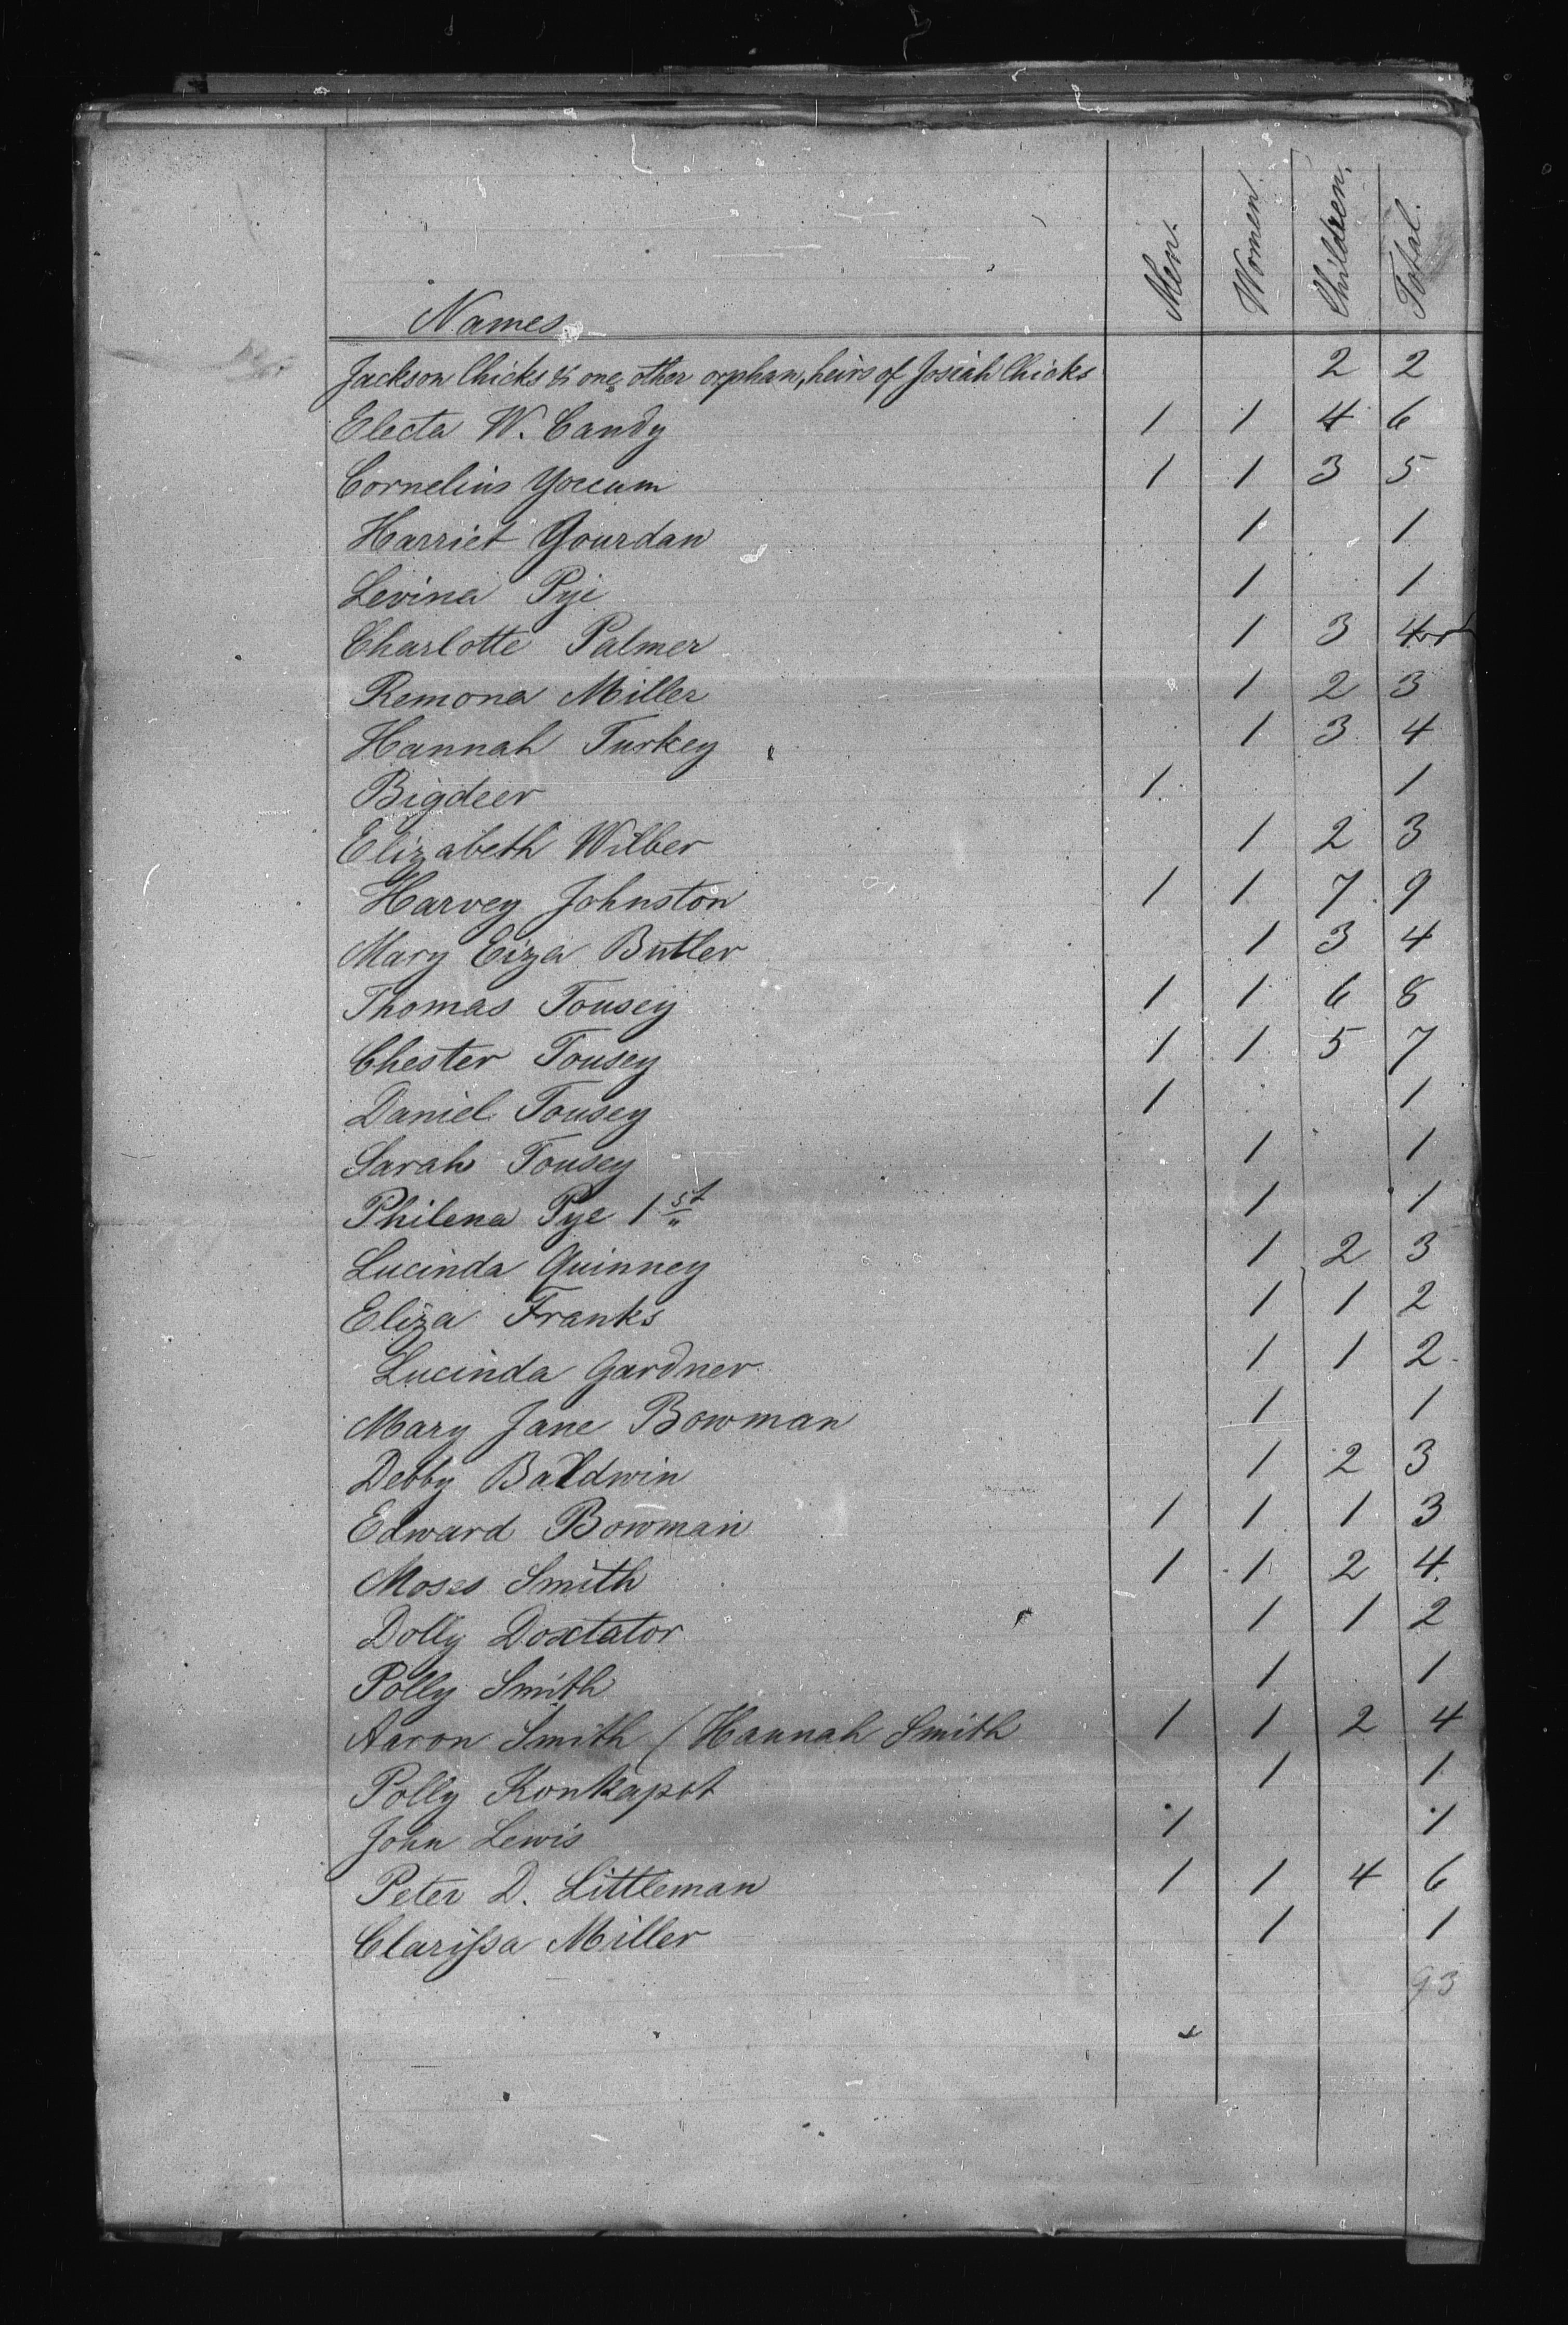 Names Men. Women. Children. Total.
Jackson Chicks & one other orphan, heirs of Josiah Chicks 2 2
Electa W. Candy 1 1 4 6
Cornelius Yoccum 1 1 3 5
Harriet Gourdan 1 1
Levina Pye 1 1
Charlotte Palmer 1 3 4
Remona Miller 1 2 3
Hannah Turkey 1 3 4
Bigdeer 1 1
Elizabeth Wilber 1 2 3
Harvey Johnston 1 1 7 9
Mary Eiza Butler 1 3 4
Thomas Tousey 1 1 6 8
Chester Tousey 1 1 5 7
Daniel Tousey 1 1
Sarah Tousey 1 1
Philena Pye 1st 1 1
Lucinda Quinney 1 2 3
Eliza Franks 1 1 2
Lucinda Gardner 1 1 2
Mary Jane Bowman 1 1
Debby Baldwin 1 2 3
Edward Bowman 1 1 1 3
Moses Smith 1 1 2 4
Dolly Doxtator 1 1 2
Polly Smith 1 1
Aaron Smith / Hannah Smith 1 1 2 4
Polly Konkapot 1 1
John Lewis 1 1
Peter D. Littleman 1 1 4 6
Clarissa Miller 1 1
93